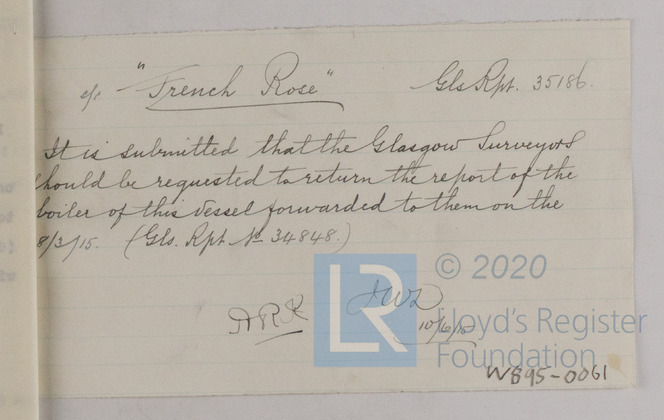 s/s "French Rose" Gls Rpt. 35186.
It is submitted that the Glasgow Surveyors
should be requested to return the report of the
boiler of this vessel forwarded to them on the
8/3/15. (Gls. Rpt. No 34848.)
ARK
10/6/15
LR
© 2020
Lloyd's Register
Foundation
W895-0061